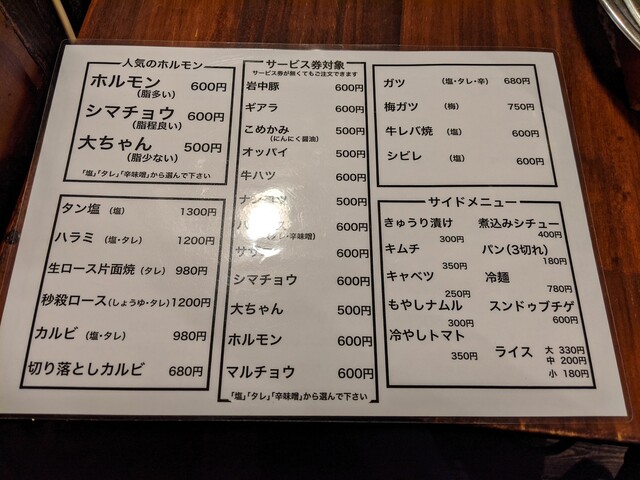 人気のホルモン
ホルモン 600円
(脂多い)
シマチョウ 600円
(脂程良い)
大ちゃん 500円
(脂少ない)
「塩」「タレ」「辛味噌」から選んで下さい
タン塩 (塩) 1300円
ハラミ (塩・タレ) 1200円
生ロース片面焼 (タレ) 980円
秒殺ロース(しょうゆ・タレ) 1200円
カルビ (塩・タレ) 980円
切り落としカルビ 680円
サービス券対象
サービス券が無くてもご注文できます
岩中豚 600円
ギアラ 600円
こめかみ 500円
(にんにく醤油)
オッパイ 500円
牛ハツ 600円
ナンコツ 500円
600円
辛味噌)
600円
シマチョウ 600円
大ちゃん 500円
ホルモン 600円
マルチョウ 600円
「塩」「タレ」「辛味噌」から選んで下さい
ガツ (塩・タレ・辛) 680円
梅ガツ (梅) 750円
牛レバ焼 (塩) 600円
シビレ (塩) 600円
サイドメニュー
きゅうり漬け 300円
キムチ 350円
キャベツ 250円
もやしナムル 300円
冷やしトマト 350円
煮込みシチュー 400円
パン(3切れ) 180円
冷麺 780円
スンドゥブチゲ 600円
ライス 大 330円
中 200円
小 180円